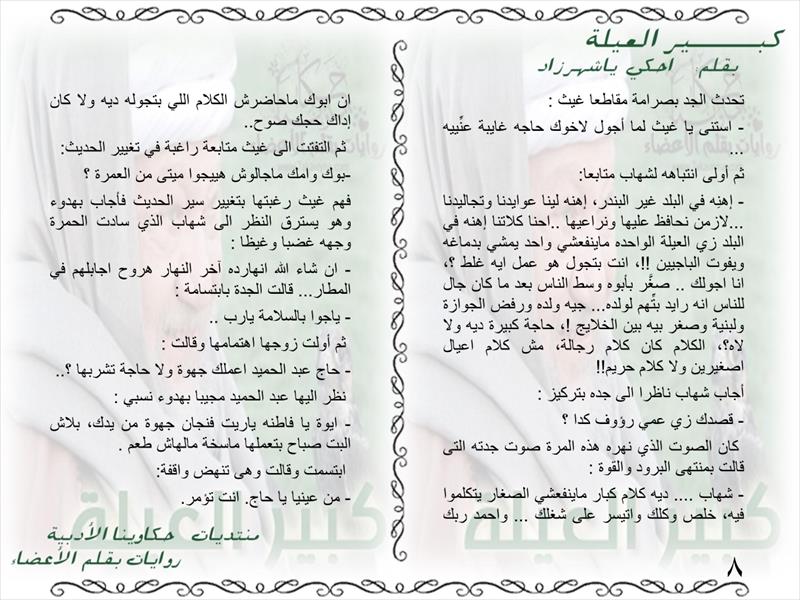 كبـــــــير العيلة
بقلم احكي ياشهرزاد
تحدث الجد بصرامة مقاطعا غيث :
- استنى يا غيث لما أجول لاخوك حاجه غايبة عنِّييه
...
ثم أولى انتباهه لشهاب متابعا:
- إهنِه في البلد غير البندر، إهنه لينا عوايدنا وتجاليدنا
...لازمن نحافظ عليها ونراعيها ..احنا كلاتنا إهنه في
البلد زي العيلة الواحده ماينفعشي واحد يمشي بدماغه
ويفوت الباجيين !!، انت بتجول هو عمل ايه غلط ؟،
انا اجولك .. صغَّر بأبوه وسط الناس بعد ما كان جال
للناس انه رايد بتِّهم لولده... جيه ولده ورفض الجوازة
ولبنية وصغر بيه بين الخلايج !، حاجة كبيرة ديه ولا
لاه؟، الكلام كان كلام رجالة، مش كلام اعيال
اصغيرين ولا كلام حريم!!
أجاب شهاب ناظرا الى جده بتركيز :
- قصدك زي عمي رؤوف كدا ؟
كان الصوت الذي نهره هذه المرة صوت جدته التى
قالت بمنتهى البرود والقوة :
- شهاب .... ديه كلام كبار ماينفعشي الصغار يتكلموا
فيه، خلص وكلك واتيسر على شغلك ... واحمد ربك
ان ابوك ماحاضرش الكلام اللي بتجوله ديه ولا كان
إداك حجك صوح..
ثم التفتت الى غيث متابعة راغبة في تغيير الحديث:
-بوك وامك ماجالوش هييجوا ميتى من العمرة ؟
فهم غيث رغبتها بتغيير سير الحديث فأجاب بهدوء
وهو يسترق النظر الى شهاب الذي سادت الحمرة
وجهه غضبا وغيظا :
- ان شاء الله انهارده آخر النهار هروح اجابلهم في
المطار... قالت الجدة بابتسامة :
- ياجوا بالسلامة يارب ..
ثم أولت زوجها اهتمامها وقالت :
- حاج عبد الحميد اعملك جهوة ولا حاجة تشربها ؟..
نظر اليها عبد الحميد مجيبا بهدوء نسبي :
- ايوة يا فاطنه ياريت فنجان جهوة من يدك، بلاش
البت صباح بتعملها ماسخة مالهاش طعم .
ابتسمت وقالت وهى تنهض واقفة:
- من عينيا يا حاج. انت تؤمر.
منتديات حكاوينا الأدبية
روايات بقلم الأعضاء
٨
كبير العيلة
كبير العيلة